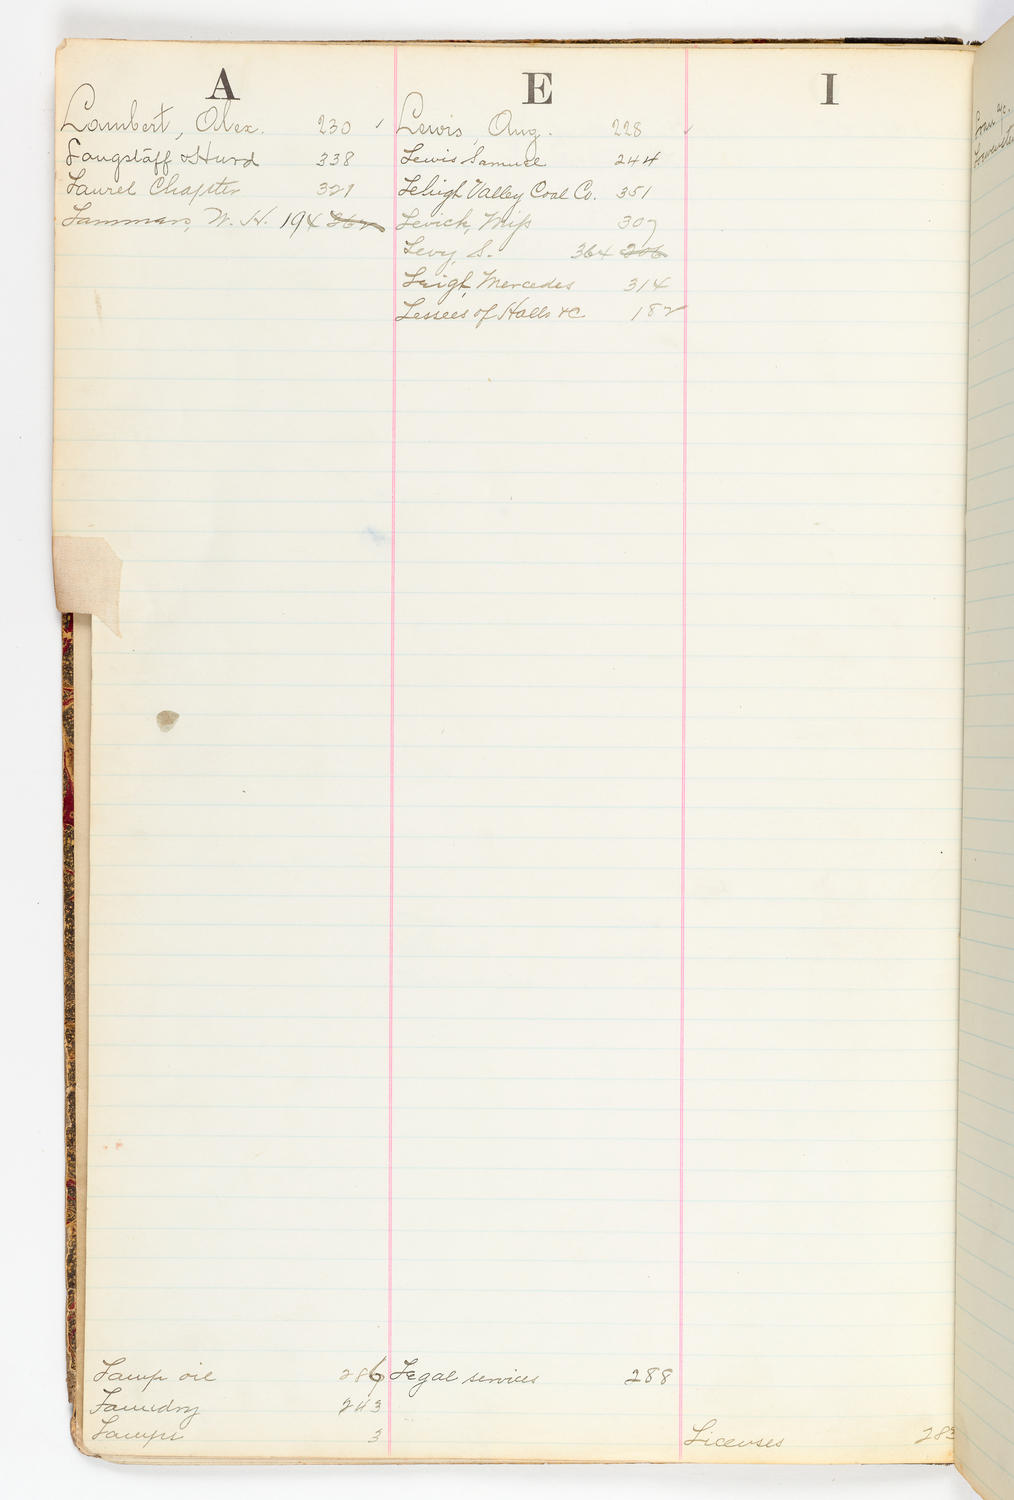 A
Lambert, Alex. 230 ✓
Langstaff & Hurd 338
Laurel Chapter 321
Lamman, W. H. 194 362
Lamp oil 286
Laundry 243
Lamps 3
E
Lewis, Aug. 228 ✓
Lewis Samuel 244
Lehigh Valley Coal Co. 351
Levick, Miss 307
Levy, S. 364 206
Leigh, Mercedes 314
Lessees of Halls &c 182
Legal services 288
I
Licenses 283
Loan a/c.